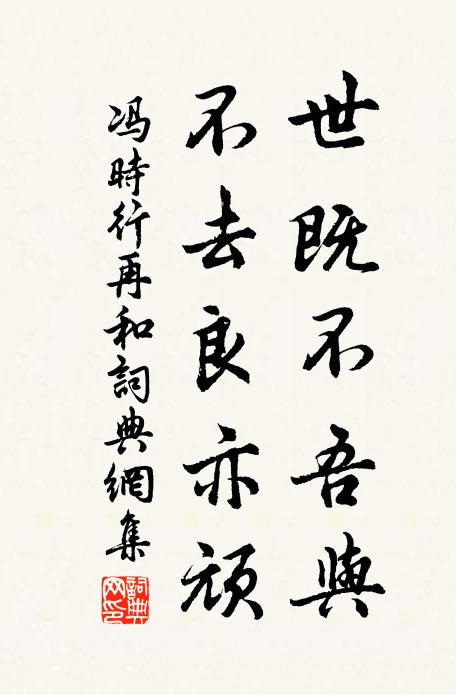 世既不吾與
不去良亦頑
冯時行再和詞典網集
詞典網印